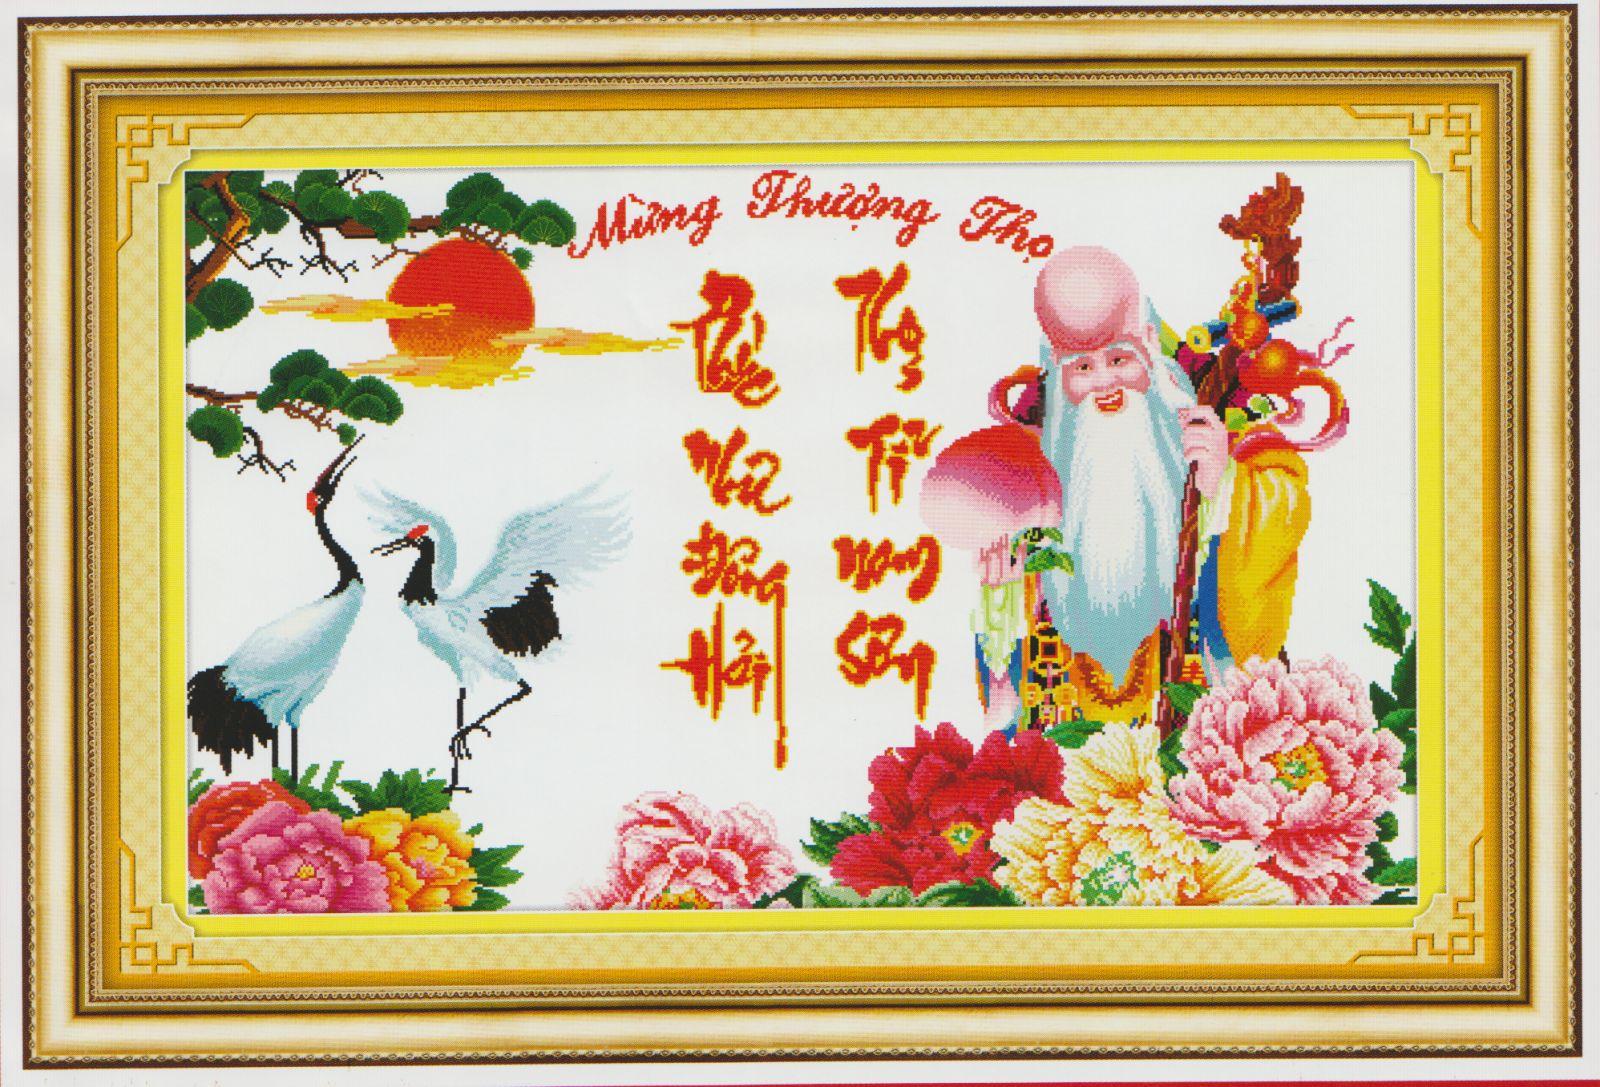 Mừng Thượng Thọ
Phúc
Như
Đông
Hải
Thọ
Tỷ
Nam
Sơn